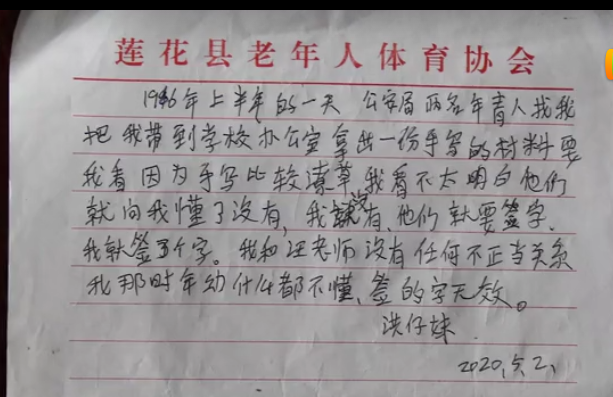 莲花县老年人体育协会
1986年上半年的一天 公安局两名年青人找我
把我带到学校办公室拿出一份手写的材料要
我看因为手写比较潦草我看不太明白他们
就问我懂了没有，我说没有，他们就要签字、
我就签了个字。我和汪老师没有任何不正当关系
我那时年幼什么都不懂、签的字无效。
洪仔妹
2020.5.2、